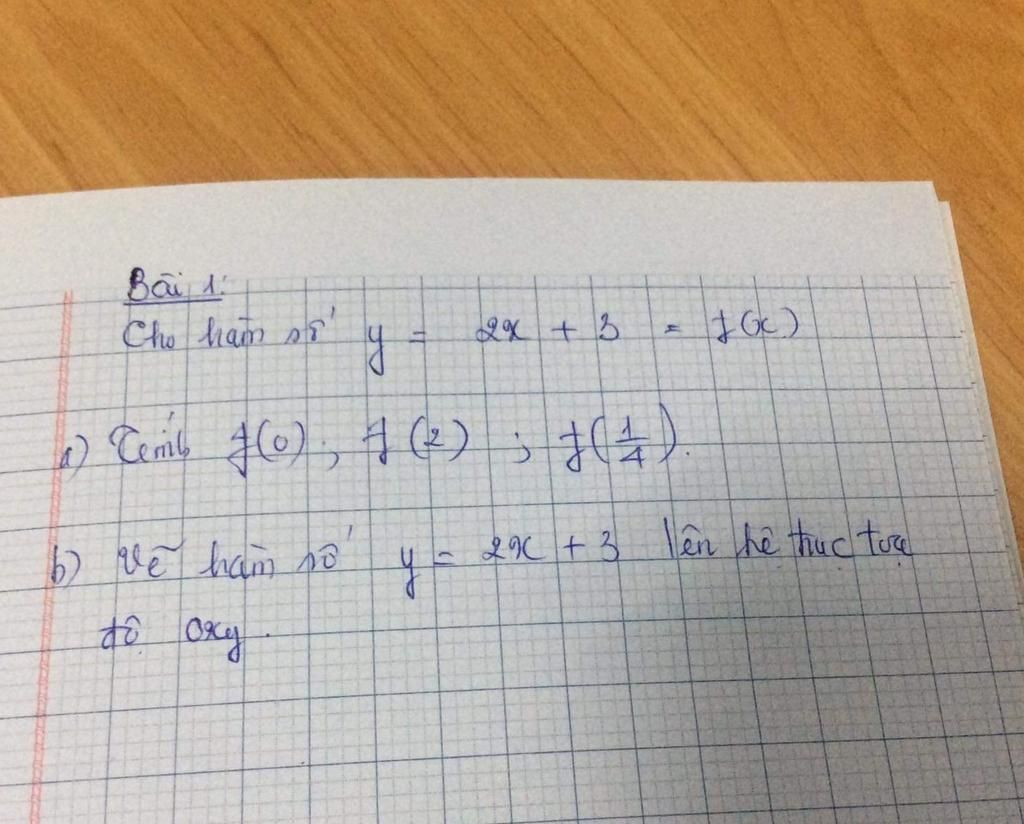 Bài 1:
Cho hàm số y = 2x + 3 = f(x)
a) Tính f(0) ; f(2) ; f(1/4).
b) Vẽ hàm số y = 2x + 3 lên hệ trục toạ
độ Oxy.